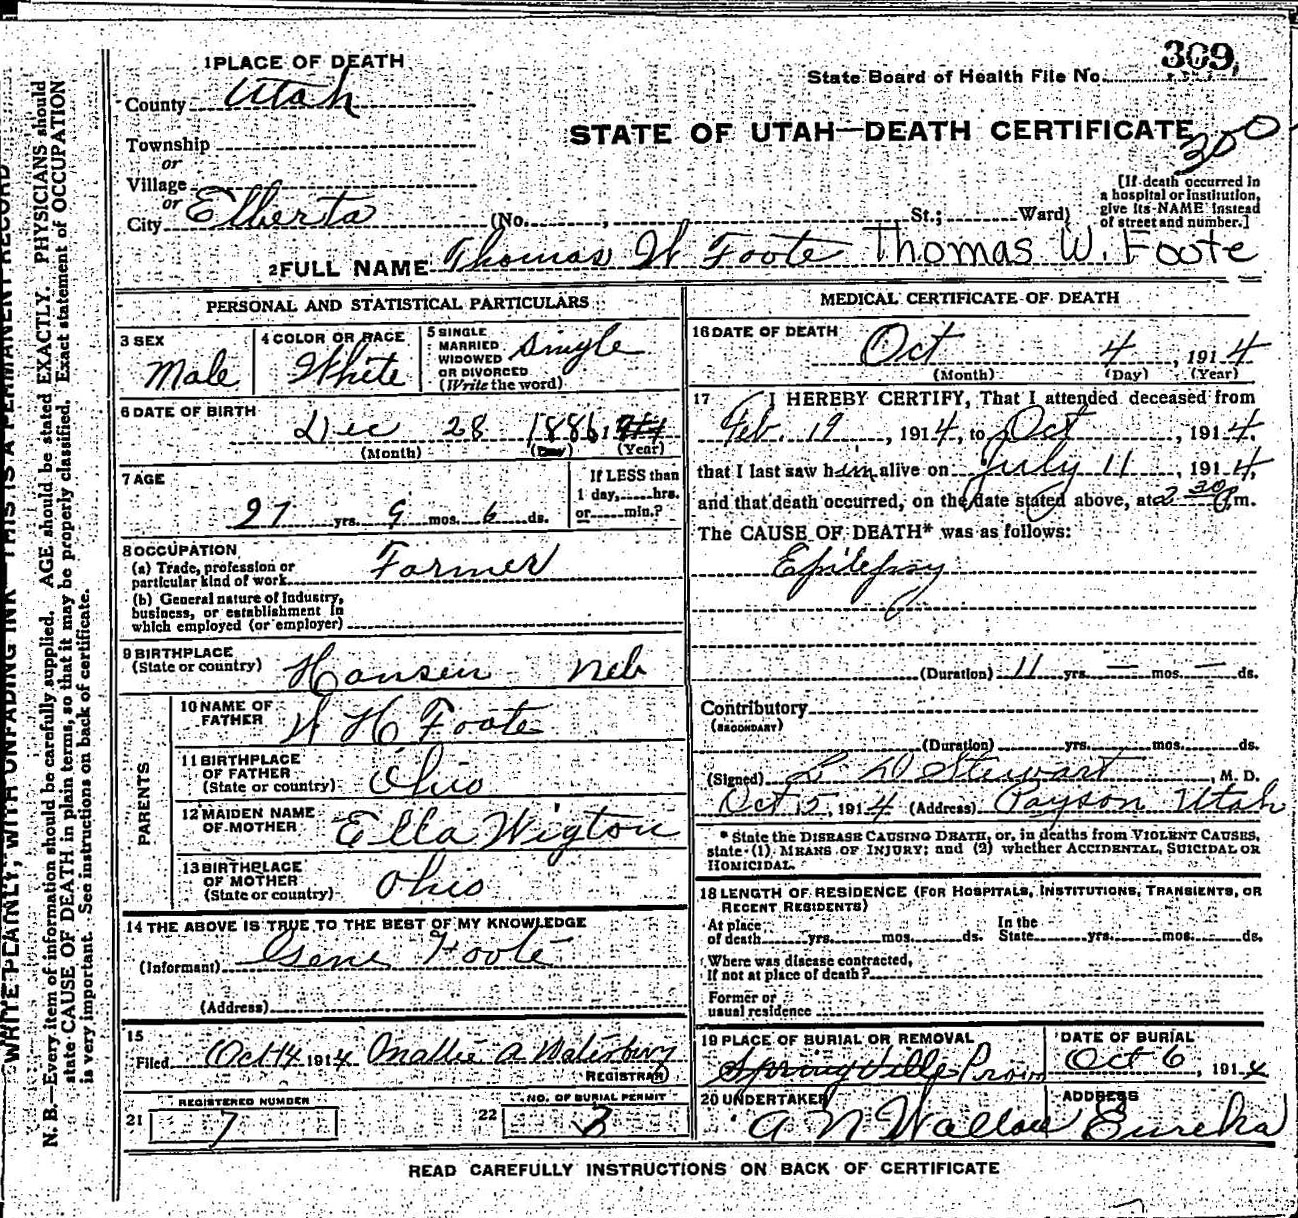 309
State Board of Health File No.
1 PLACE OF DEATH
County Utah
STATE OF UTAH—DEATH CERTIFICATE
300
Township
or
Village
or
City Elberta (No. , St.; Ward)
[If death occurred in
a hospital or institution,
give its NAME instead
of street and number.]
2 FULL NAME Thomas W Foote Thomas W. Foote
PERSONAL AND STATISTICAL PARTICULARS
3 SEX
Male
4 COLOR OR RACE
White
5 SINGLE
MARRIED
WIDOWED
OR DIVORCED
(Write the word)
Single
6 DATE OF BIRTH
Dec 28 1886 191
(Month) (Day) (Year)
7 AGE
27 yrs. 9 mos. 6 ds.
If LESS than
1 day, hrs.
or min.?
8 OCCUPATION
(a) Trade, profession or
particular kind of work Farmer
(b) General nature of Industry,
business, or establishment in
which employed (or employer)
9 BIRTHPLACE
(State or country) Hansen Neb
PARENTS
10 NAME OF
FATHER W H Foote
11 BIRTHPLACE
OF FATHER
(State or country) Ohio
12 MAIDEN NAME
OF MOTHER Ella Wigton
13 BIRTHPLACE
OF MOTHER
(State or country) Ohio
14 THE ABOVE IS TRUE TO THE BEST OF MY KNOWLEDGE
(Informant) Gene Foote
(Address)
15
Filed Oct 14 1914 A
REGISTRAR
REGISTERED NUMBER
21 7
NO. OF BURIAL PERMIT
22 3
MEDICAL CERTIFICATE OF DEATH
16 DATE OF DEATH
Oct 4, 1914
(Month) (Day) (Year)
17 I HEREBY CERTIFY, That I attended deceased from
Feb. 19, 1914, to Oct, 1914.
that I last saw him alive on July 11, 1914,
and that death occurred, on the date stated above, at 2 30 P.m.
The CAUSE OF DEATH* was as follows:
Epilepsy
(Duration) 11 yrs. — mos. — ds.
Contributory
(SECONDARY)
(Duration) yrs. mos. ds.
(Signed) L. D Stewart, M. D.
Oct 5, 1914 (Address) Payson Utah
* State the DISEASE CAUSING DEATH, or, in deaths from VIOLENT CAUSES,
state (1) MEANS OF INJURY; and (2) whether ACCIDENTAL, SUICIDAL OR
HOMICIDAL.
18 LENGTH OF RESIDENCE (FOR HOSPITALS, INSTITUTIONS, TRANSIENTS, OR
RECENT RESIDENTS)
At place
of death yrs. mos. ds. In the
State yrs. mos. ds.
Where was disease contracted,
If not at place of death?
Former or
usual residence
19 PLACE OF BURIAL OR REMOVAL
Springville Provo
DATE OF BURIAL
Oct 6, 1914
20 UNDERTAKER
A N Wallace
ADDRESS
Eureka
READ CAREFULLY INSTRUCTIONS ON BACK OF CERTIFICATE
WRITE PLAINLY, WITH UNFADING INK—THIS IS A PERMANENT RECORD
N. B.—Every item of information should be carefully supplied. AGE should be stated EXACTLY. PHYSICIANS should
state CAUSE OF DEATH in plain terms, so that it may be properly classified. Exact statement of OCCUPATION
is very important. See instructions on back of certificate.